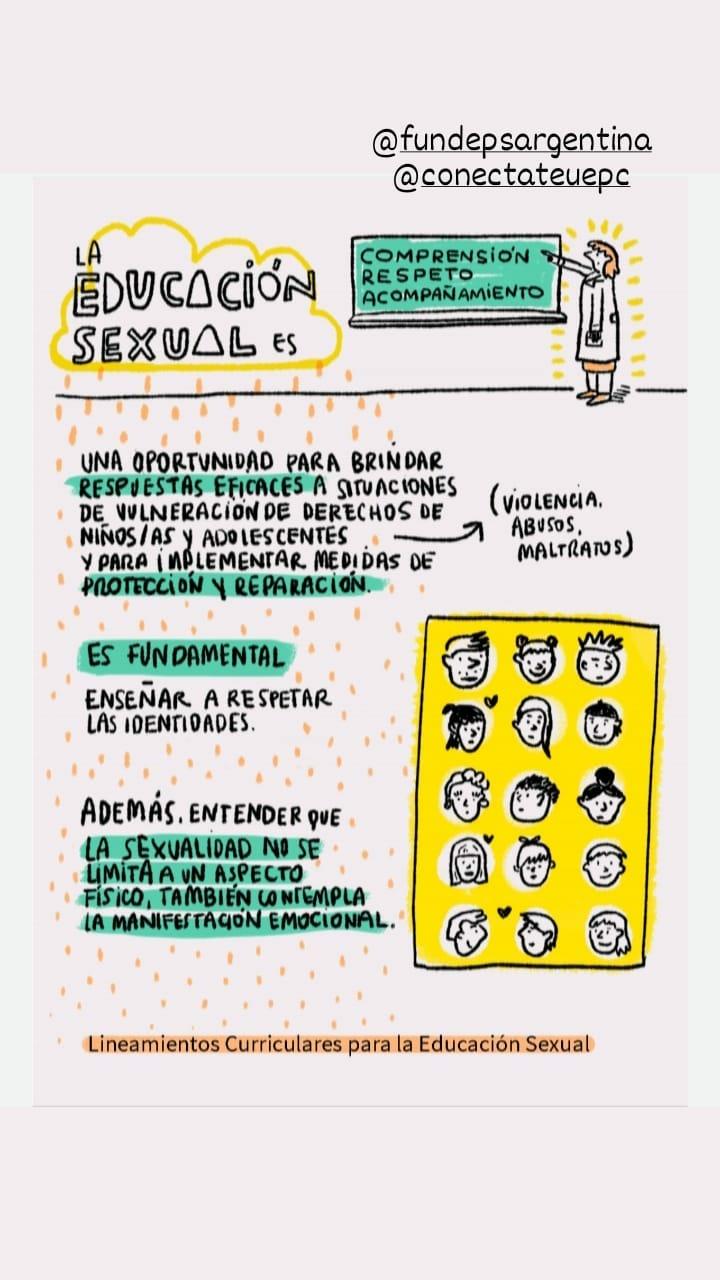 @fundepsargentina
@conectateuepc
LA
EDUCACIÓN
SEXUAL ES
COMPRENSIÓN
RESPETO
ACOMPAÑAMIENTO
UNA OPORTUNIDAD PARA BRINDAR
RESPUESTAS EFICACES A SITUACIONES
DE VULNERACIÓN DE DERECHOS DE
NIÑOS/AS Y ADOLESCENTES
Y PARA IMPLEMENTAR MEDIDAS DE
PROTECCIÓN Y REPARACIÓN.
(VIOLENCIA.
ABUSOS,
MALTRATOS)
ES FUNDAMENTAL
ENSEÑAR A RESPETAR
LAS IDENTIDADES.
ADEMÁS. ENTENDER QUE
LA SEXUALIDAD NO SE
LIMITA A UN ASPECTO
FÍSICO, TAMBIÉN CONTEMPLA
LA MANIFESTACIÓN EMOCIONAL.
Lineamientos Curriculares para la Educación Sexual